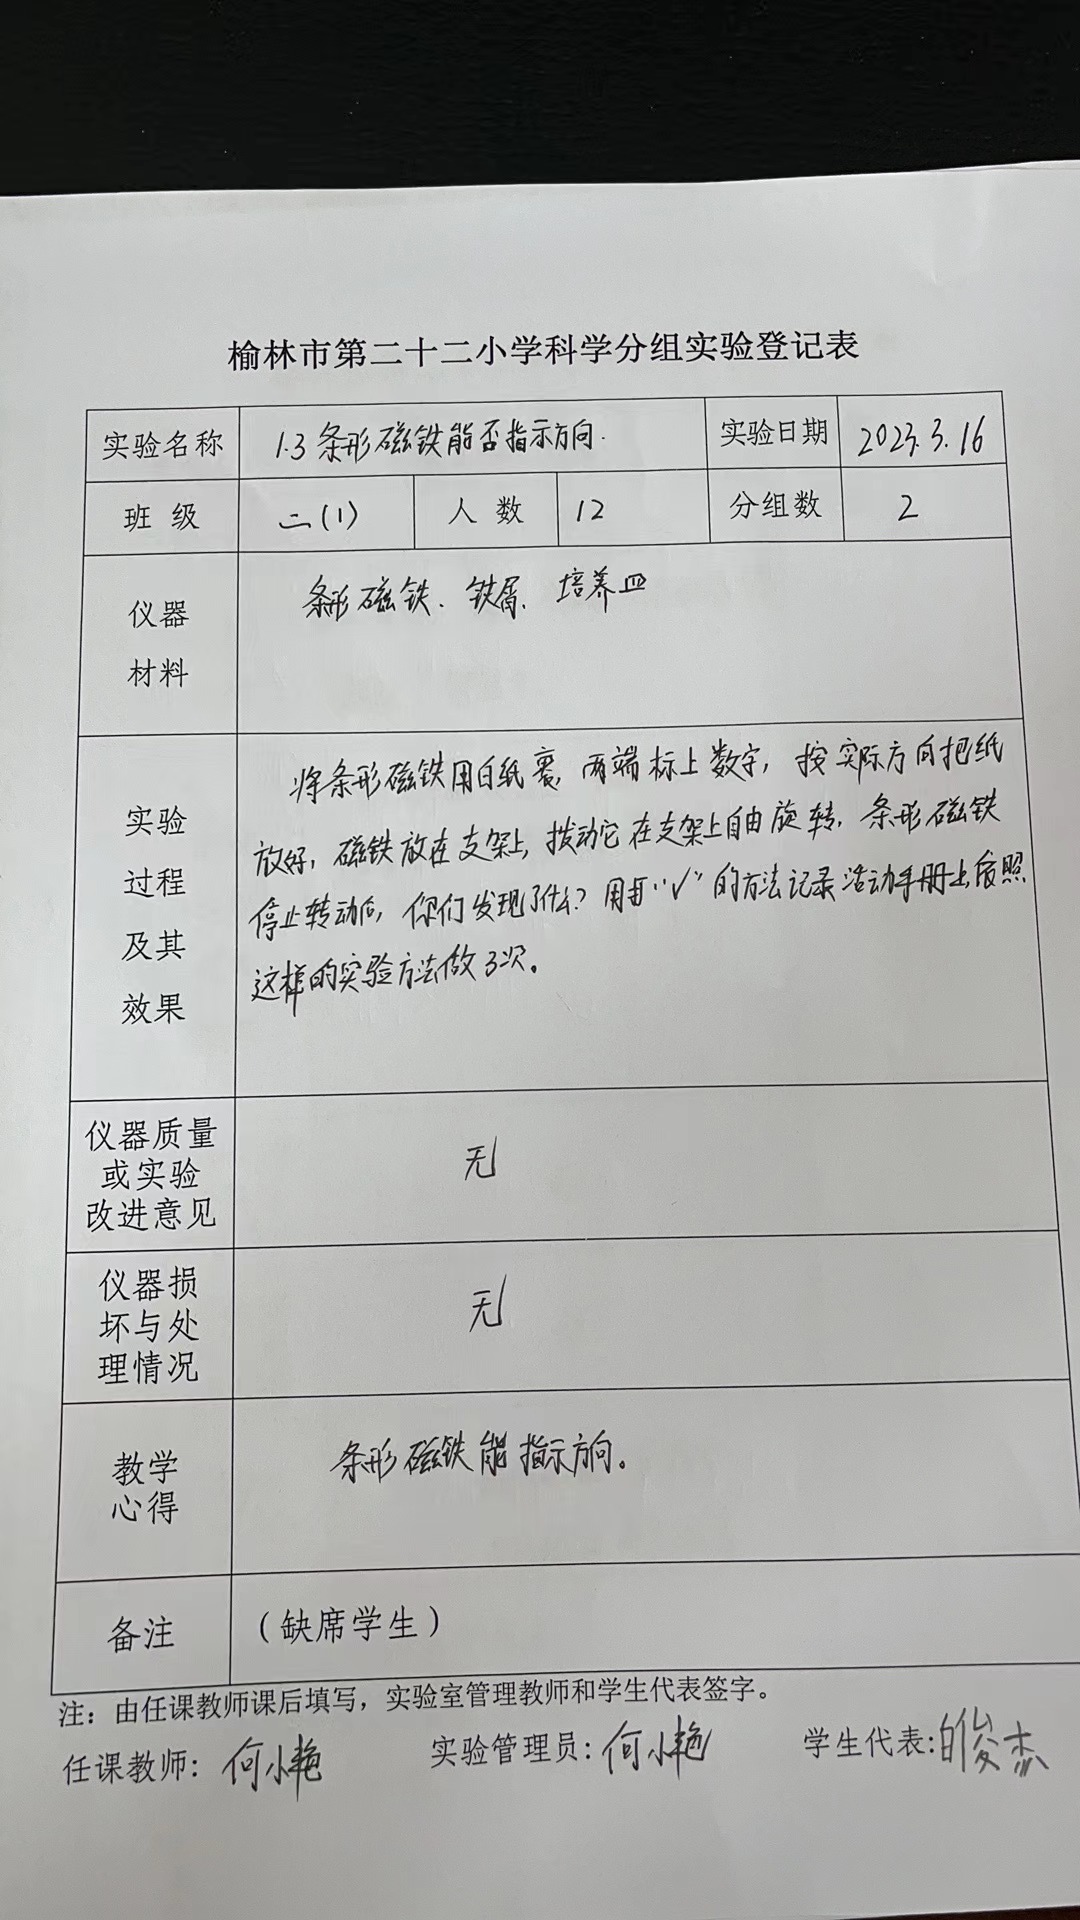 榆林市第二十二小学科学分组实验登记表
实验名称 1.3条形磁铁能否指示方向. 实验日期 2023.3.16
班级 二(1) 人数 12 分组数 2
仪器
材料
条形磁铁、铁屑、培养皿
实验
过程
及其
效果
将条形磁铁用白纸裹,两端标上数字,按实际方向把纸
放好,磁铁放在支架上,拨动它在支架上自由旋转,条形磁铁
停止转动后,你们发现了什么?用打“√”的方法记录活动手册上,按照
这样的实验方法做3次。
仪器质量
或实验
改进意见
无
仪器损
坏与处
理情况
无
教学
心得
条形磁铁能指示方向。
备注 (缺席学生)
注:由任课教师课后填写,实验室管理教师和学生代表签字。
任课教师:何小艳 实验管理员:何小艳 学生代表:白俊杰